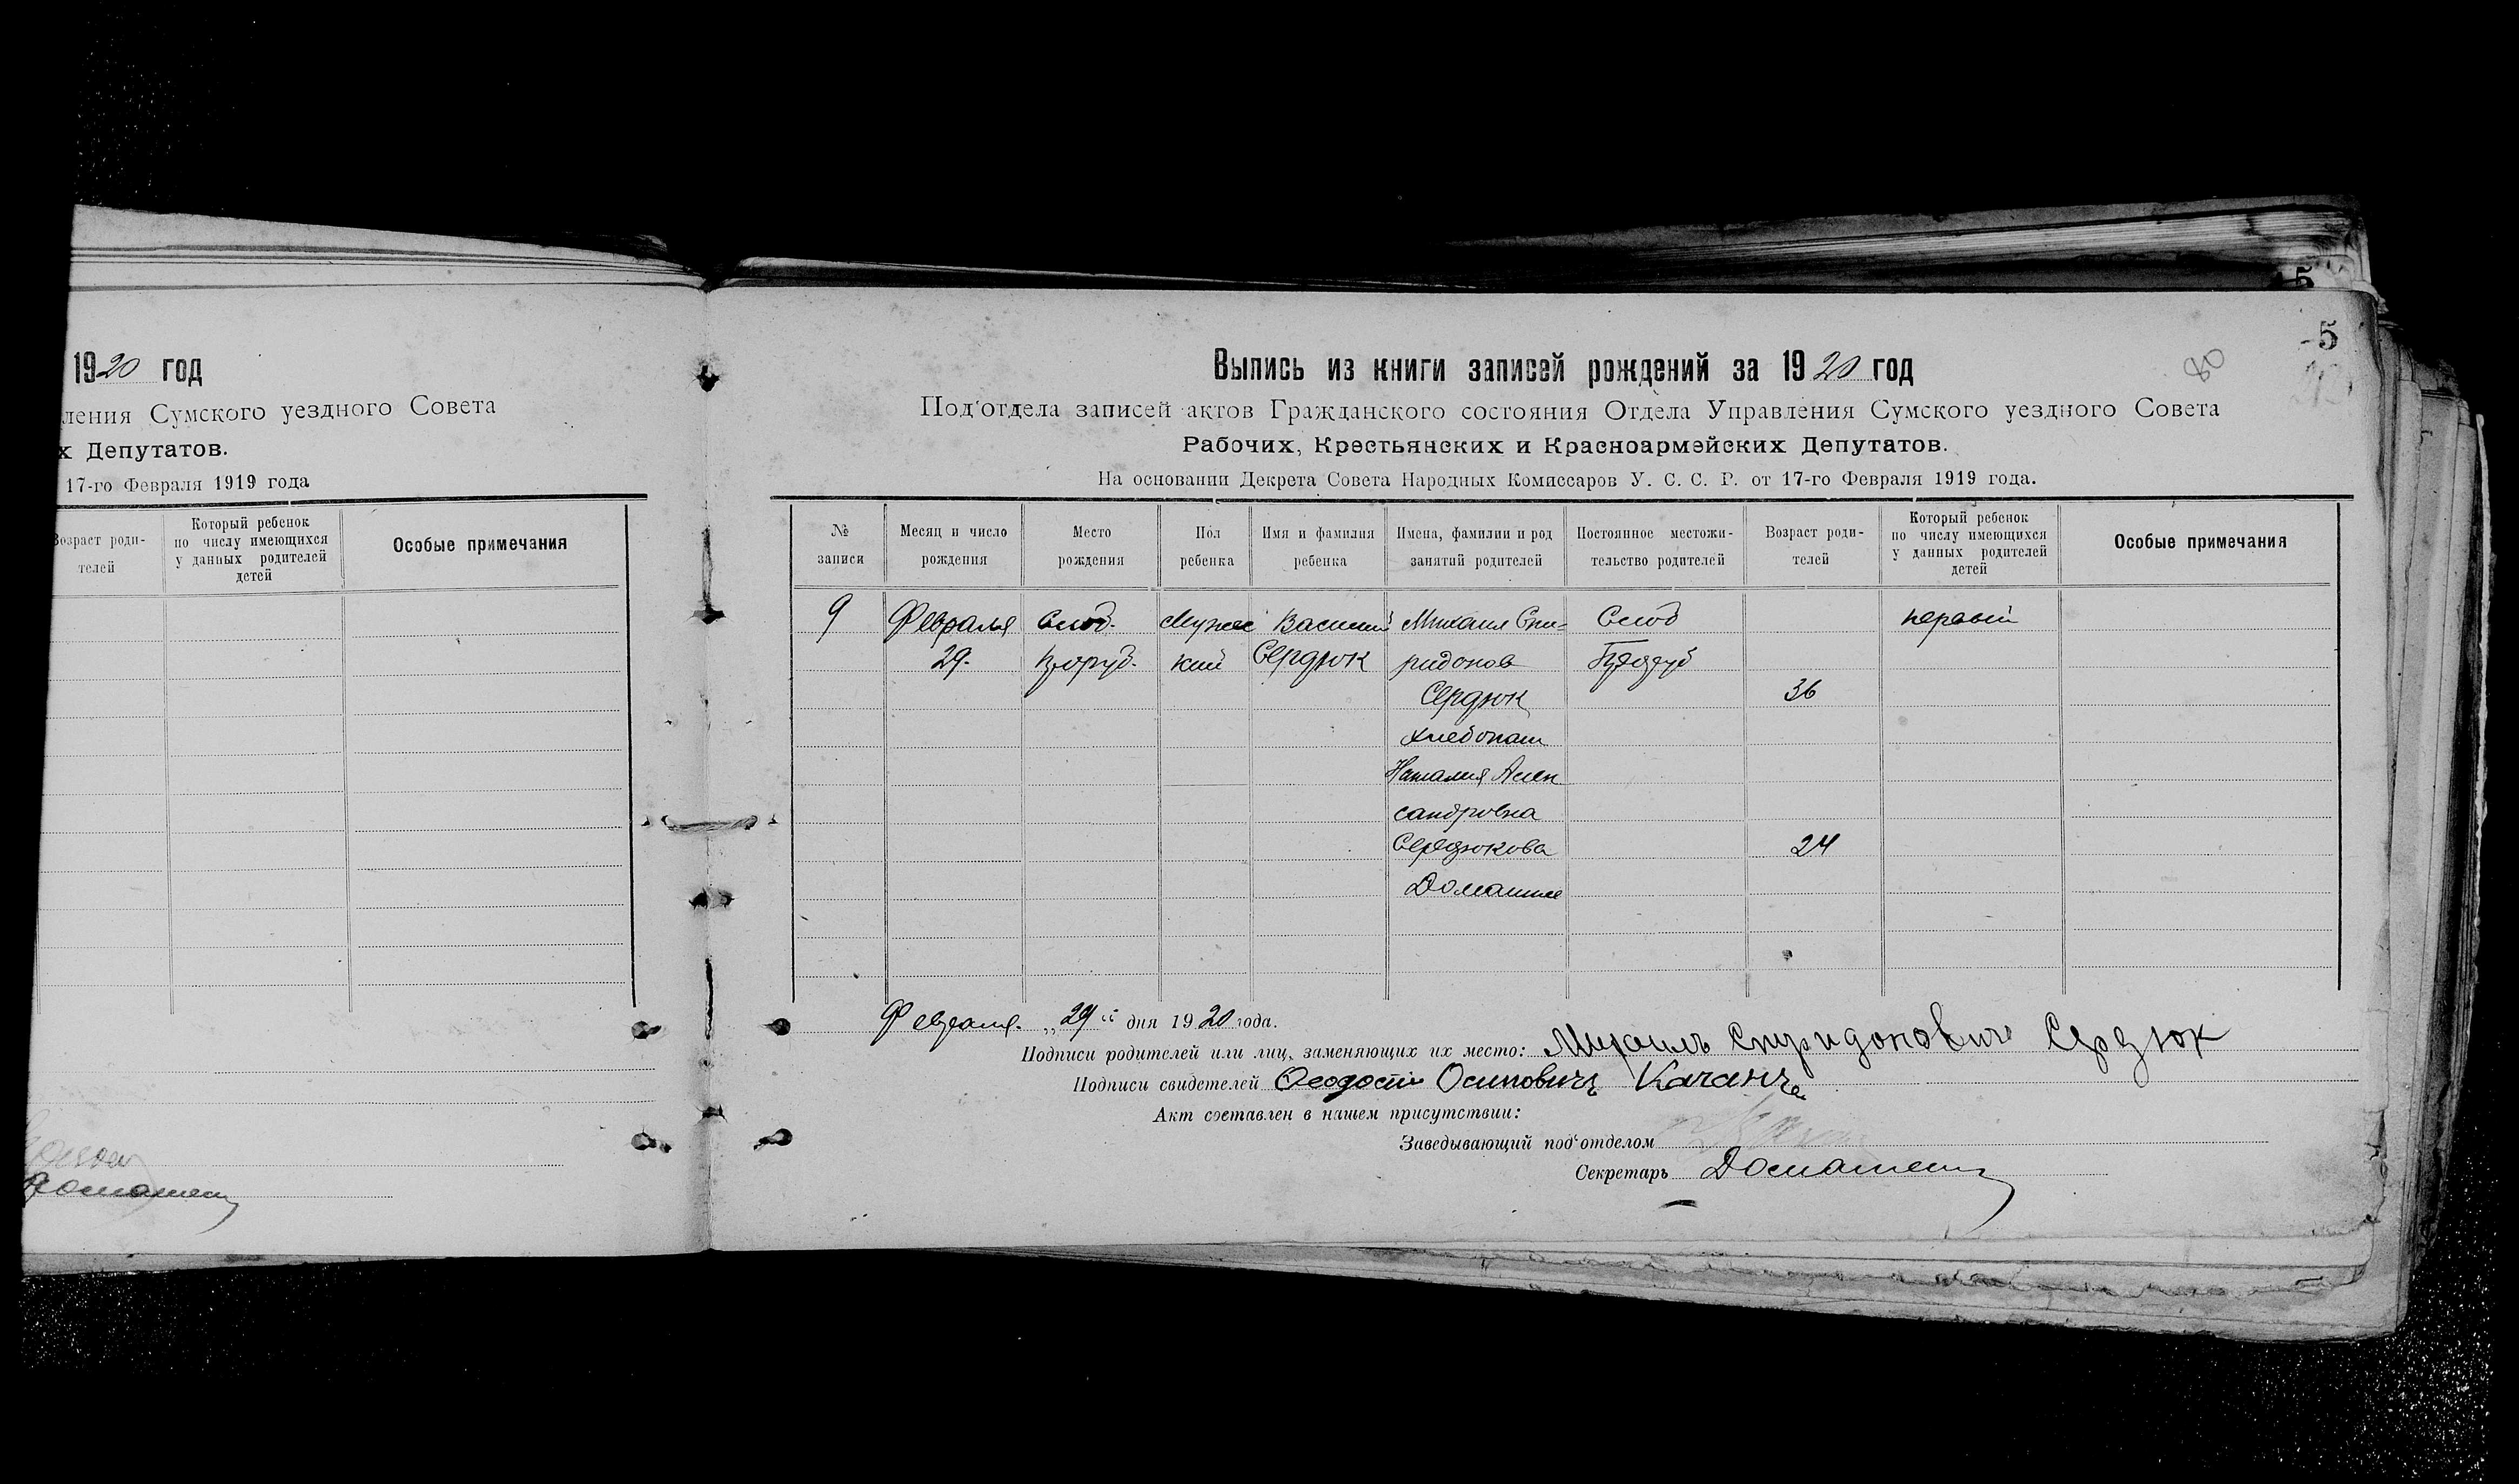 1920 год
ления Сумского уездного Совета
х Депутатов.
17-го Февраля 1919 года
Возраст роди-
телей
Который ребенок
по числу имеющихся
у данных родителей
детей
Особые примечания
5
5
80
Выпись из книги записей рождений за 1920 год
Под‘отдела записей актов Гражданского состояния Отдела Управления Сумского уездного Совета
Рабочих, Крестьянских и Красноармейских Депутатов.
На основании Декрета Совета Народных Комиссаров У. С. С. Р. от 17-го Февраля 1919 года.
№
записи
Месяц и число
рождения
Место
рождения
Пол
ребенка
Имя и фамилия
ребенка
Имена, фамилии и род
занятий родителей
Постоянное местожи-
тельство родителей
Возраст роди-
телей
Который ребенок
по числу имеющихся
у данных родителей
детей
Особые примечания
9 Февраля Слод. Мужес Василий Михаил Спи= Слод первый
29. кий Сердюк ридонов
Сердюк 36
хлебопаш
Наталия Алек
сандровна
Середюкова 24
Домашние
Февраля „29“ дня 1920 года.
Подписи родителей или лиц, заменяющих их место: Михаилъ Спиридонович Сердюк
Подписи свидетелей Феодосий Осиповичъ
Акт составлен в нашем присутствии:
Заведывающий под‘отделом
Секретарь